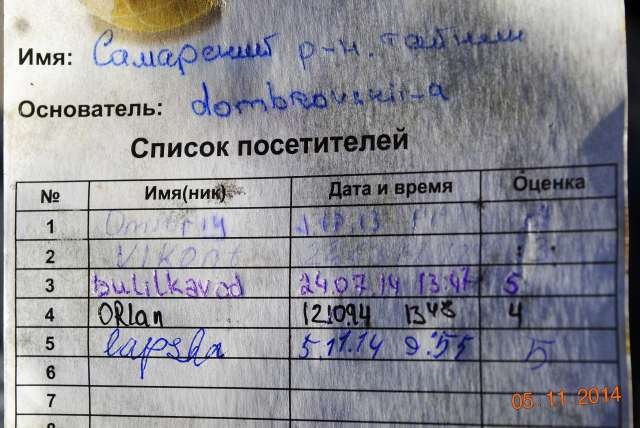 Имя: Самарский р-н. тайник
Основатель: dombrovskii-a
Список посетителей
№ Имя(ник) Дата и время Оценка
1 Dmitriy
2
3 bulilkavod 24.07.14 13:47 5
4 ORlan 121094 1348 4
5 lapsha 5.11.14 9:55 5
6
7
05 11 2014